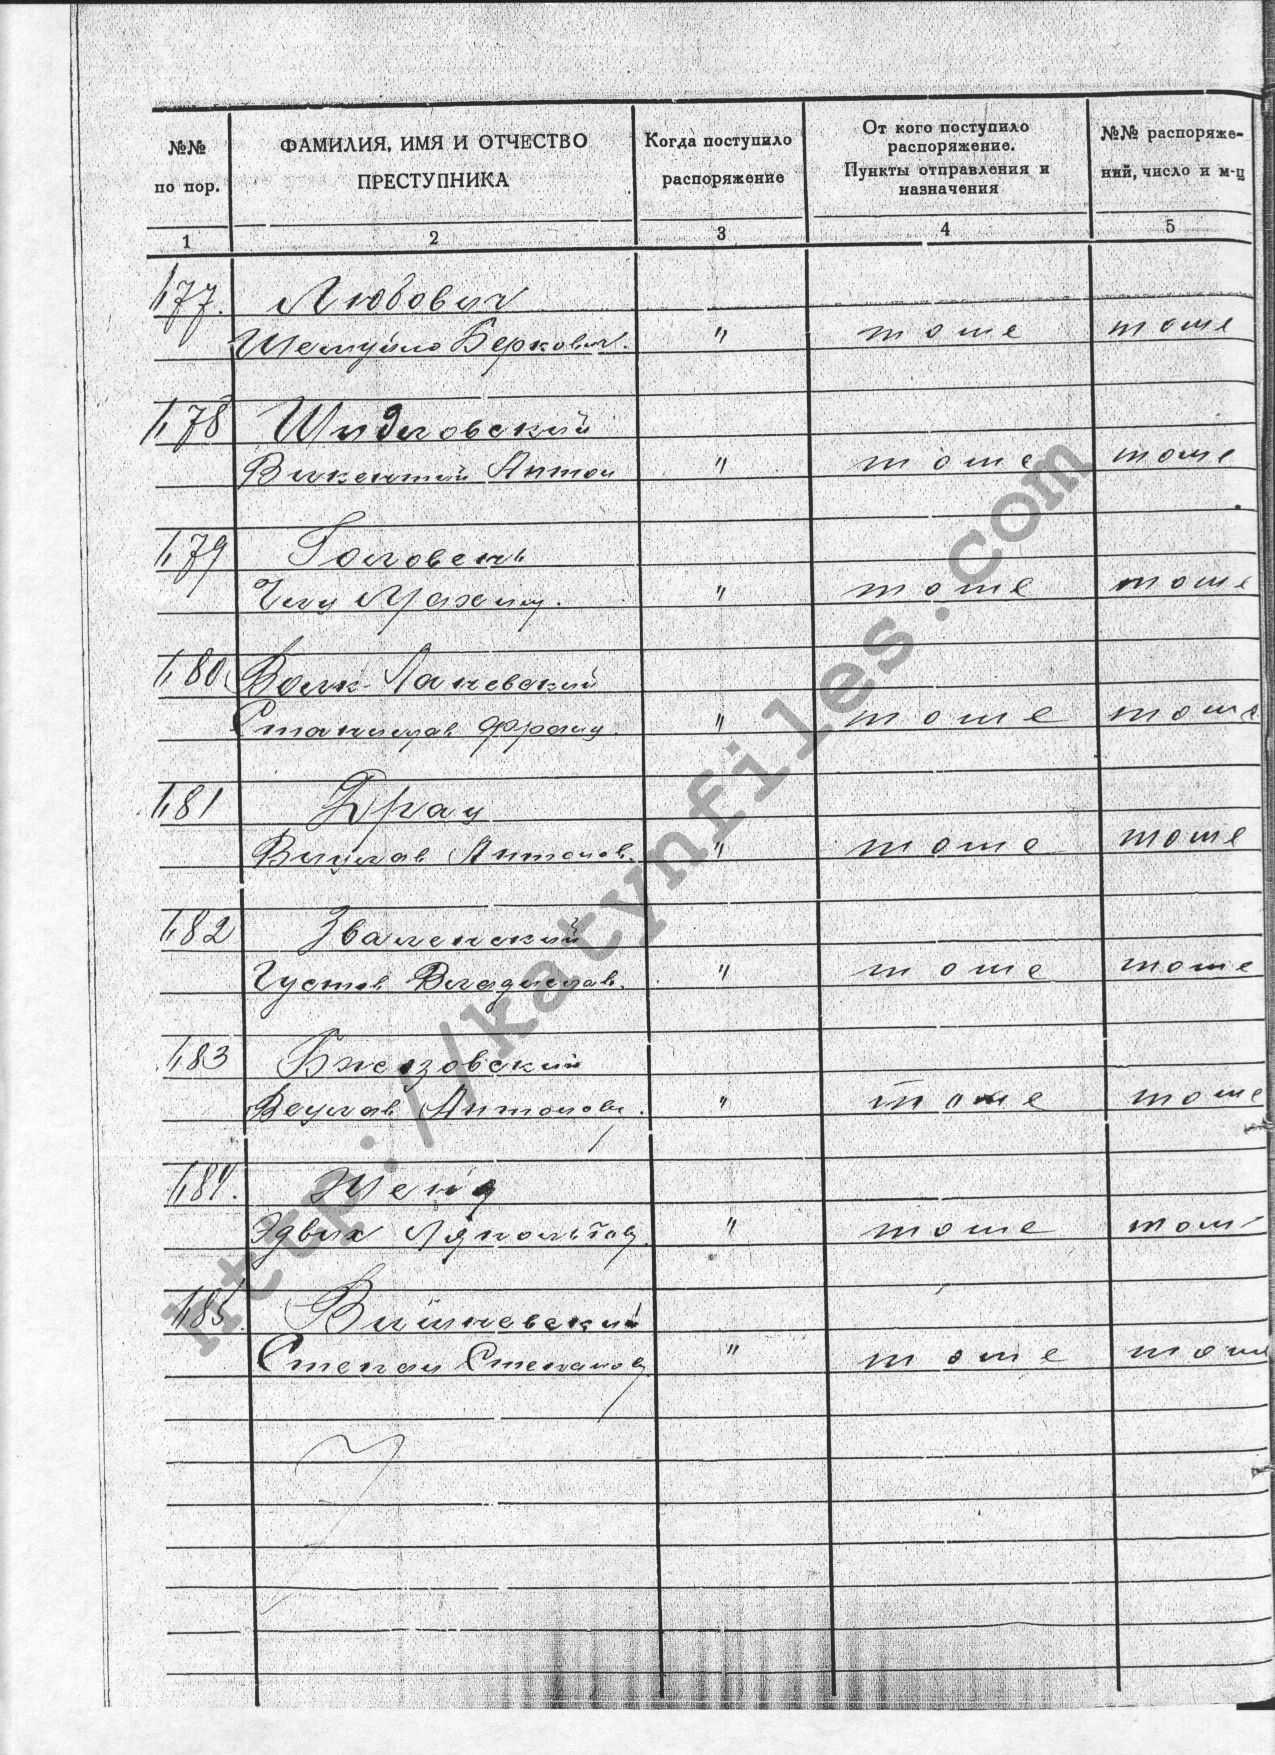 №№ по пор.
ФАМИЛИЯ, ИМЯ И ОТЧЕСТВО ПРЕСТУПНИКА
Когда поступило распоряжение
От кого поступило распоряжение. Пункты отправления и назначения
№№ распоряже-ний, число и м-ц
1 2 3 4 5
177. Любович
Шемуйло Беркович. " тоше тоше
178 Шидловский
Викентий Антон " тоше тоше
179 Головень
" тоше тоше
180 Волк-Ланевский
Станислав Франц. " тоше тоше
181
Вацлав Антонов. " тоше тоше
182 Зваленский
Густав Владислав. " тоше тоше
183
Вецлав Антонов. " тоше тоше
184. Шейд
" тоше тоше
185. Вишневский
Степан Степанов " тоше тоше
http://katynfiles.com